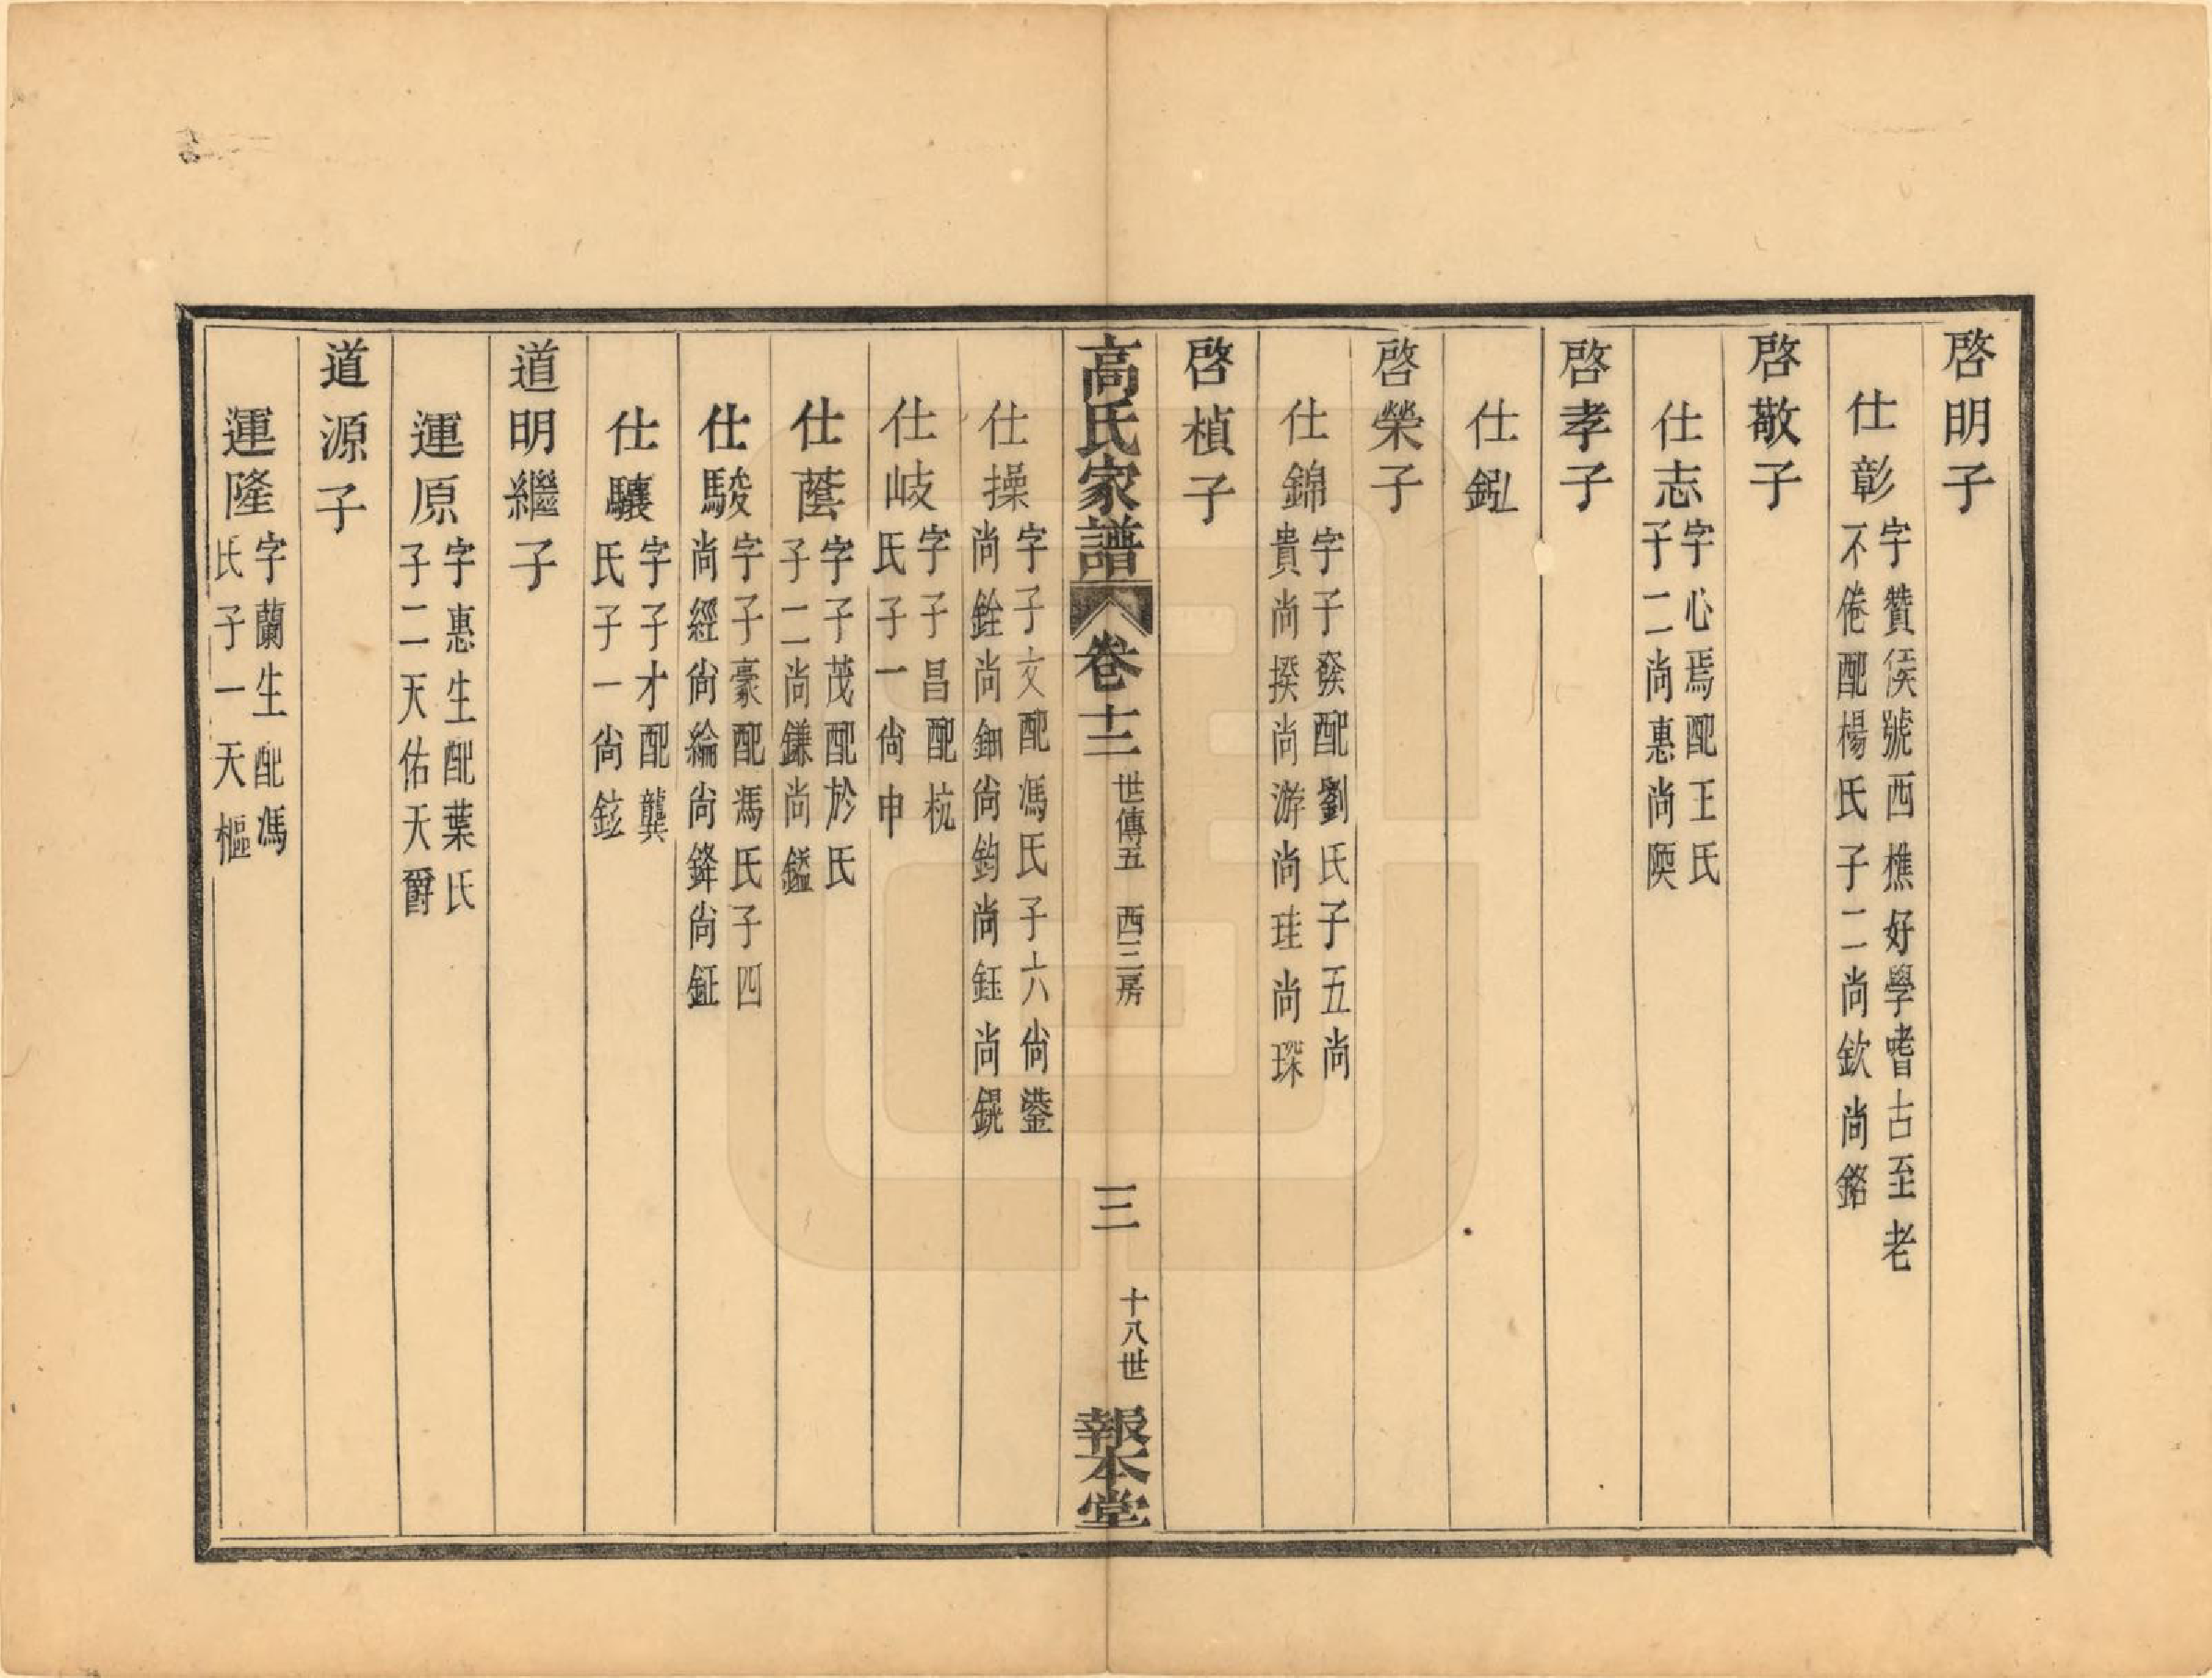 啓明子
仕彰
字贊侯號西樵好學嗜古至老
不倦配楊氏子二尚欽尚銘
啓敬子
仕志
字心焉配王氏
子二尚惠尚陝
啓孝子
仕鈏
啓榮子
仕錦
字子發配劉氏子五尚
貴尚揆尚游尚珪尚琛
啓楨子
高氏家譜
卷十二
世傳五 西三房
三
十八世
報本堂
仕操
字子文配馮氏子六尚鎣
尚銓尚鈿尚鈞尚鈺尚錕
仕岐
字子昌配杭
氏子一尚申
仕蔭
字子茂配於氏
子二尚鎌尚鎰
仕駿
字子豪配馮氏子四
尚經尚綸尚鋒尚鉦
仕驤
字子才配龔
氏子一尚鉉
道明繼子
運原
字惠生配葉氏
子二天佑天爵
道源子
運隆
字蘭生配馮
氏子一天樞